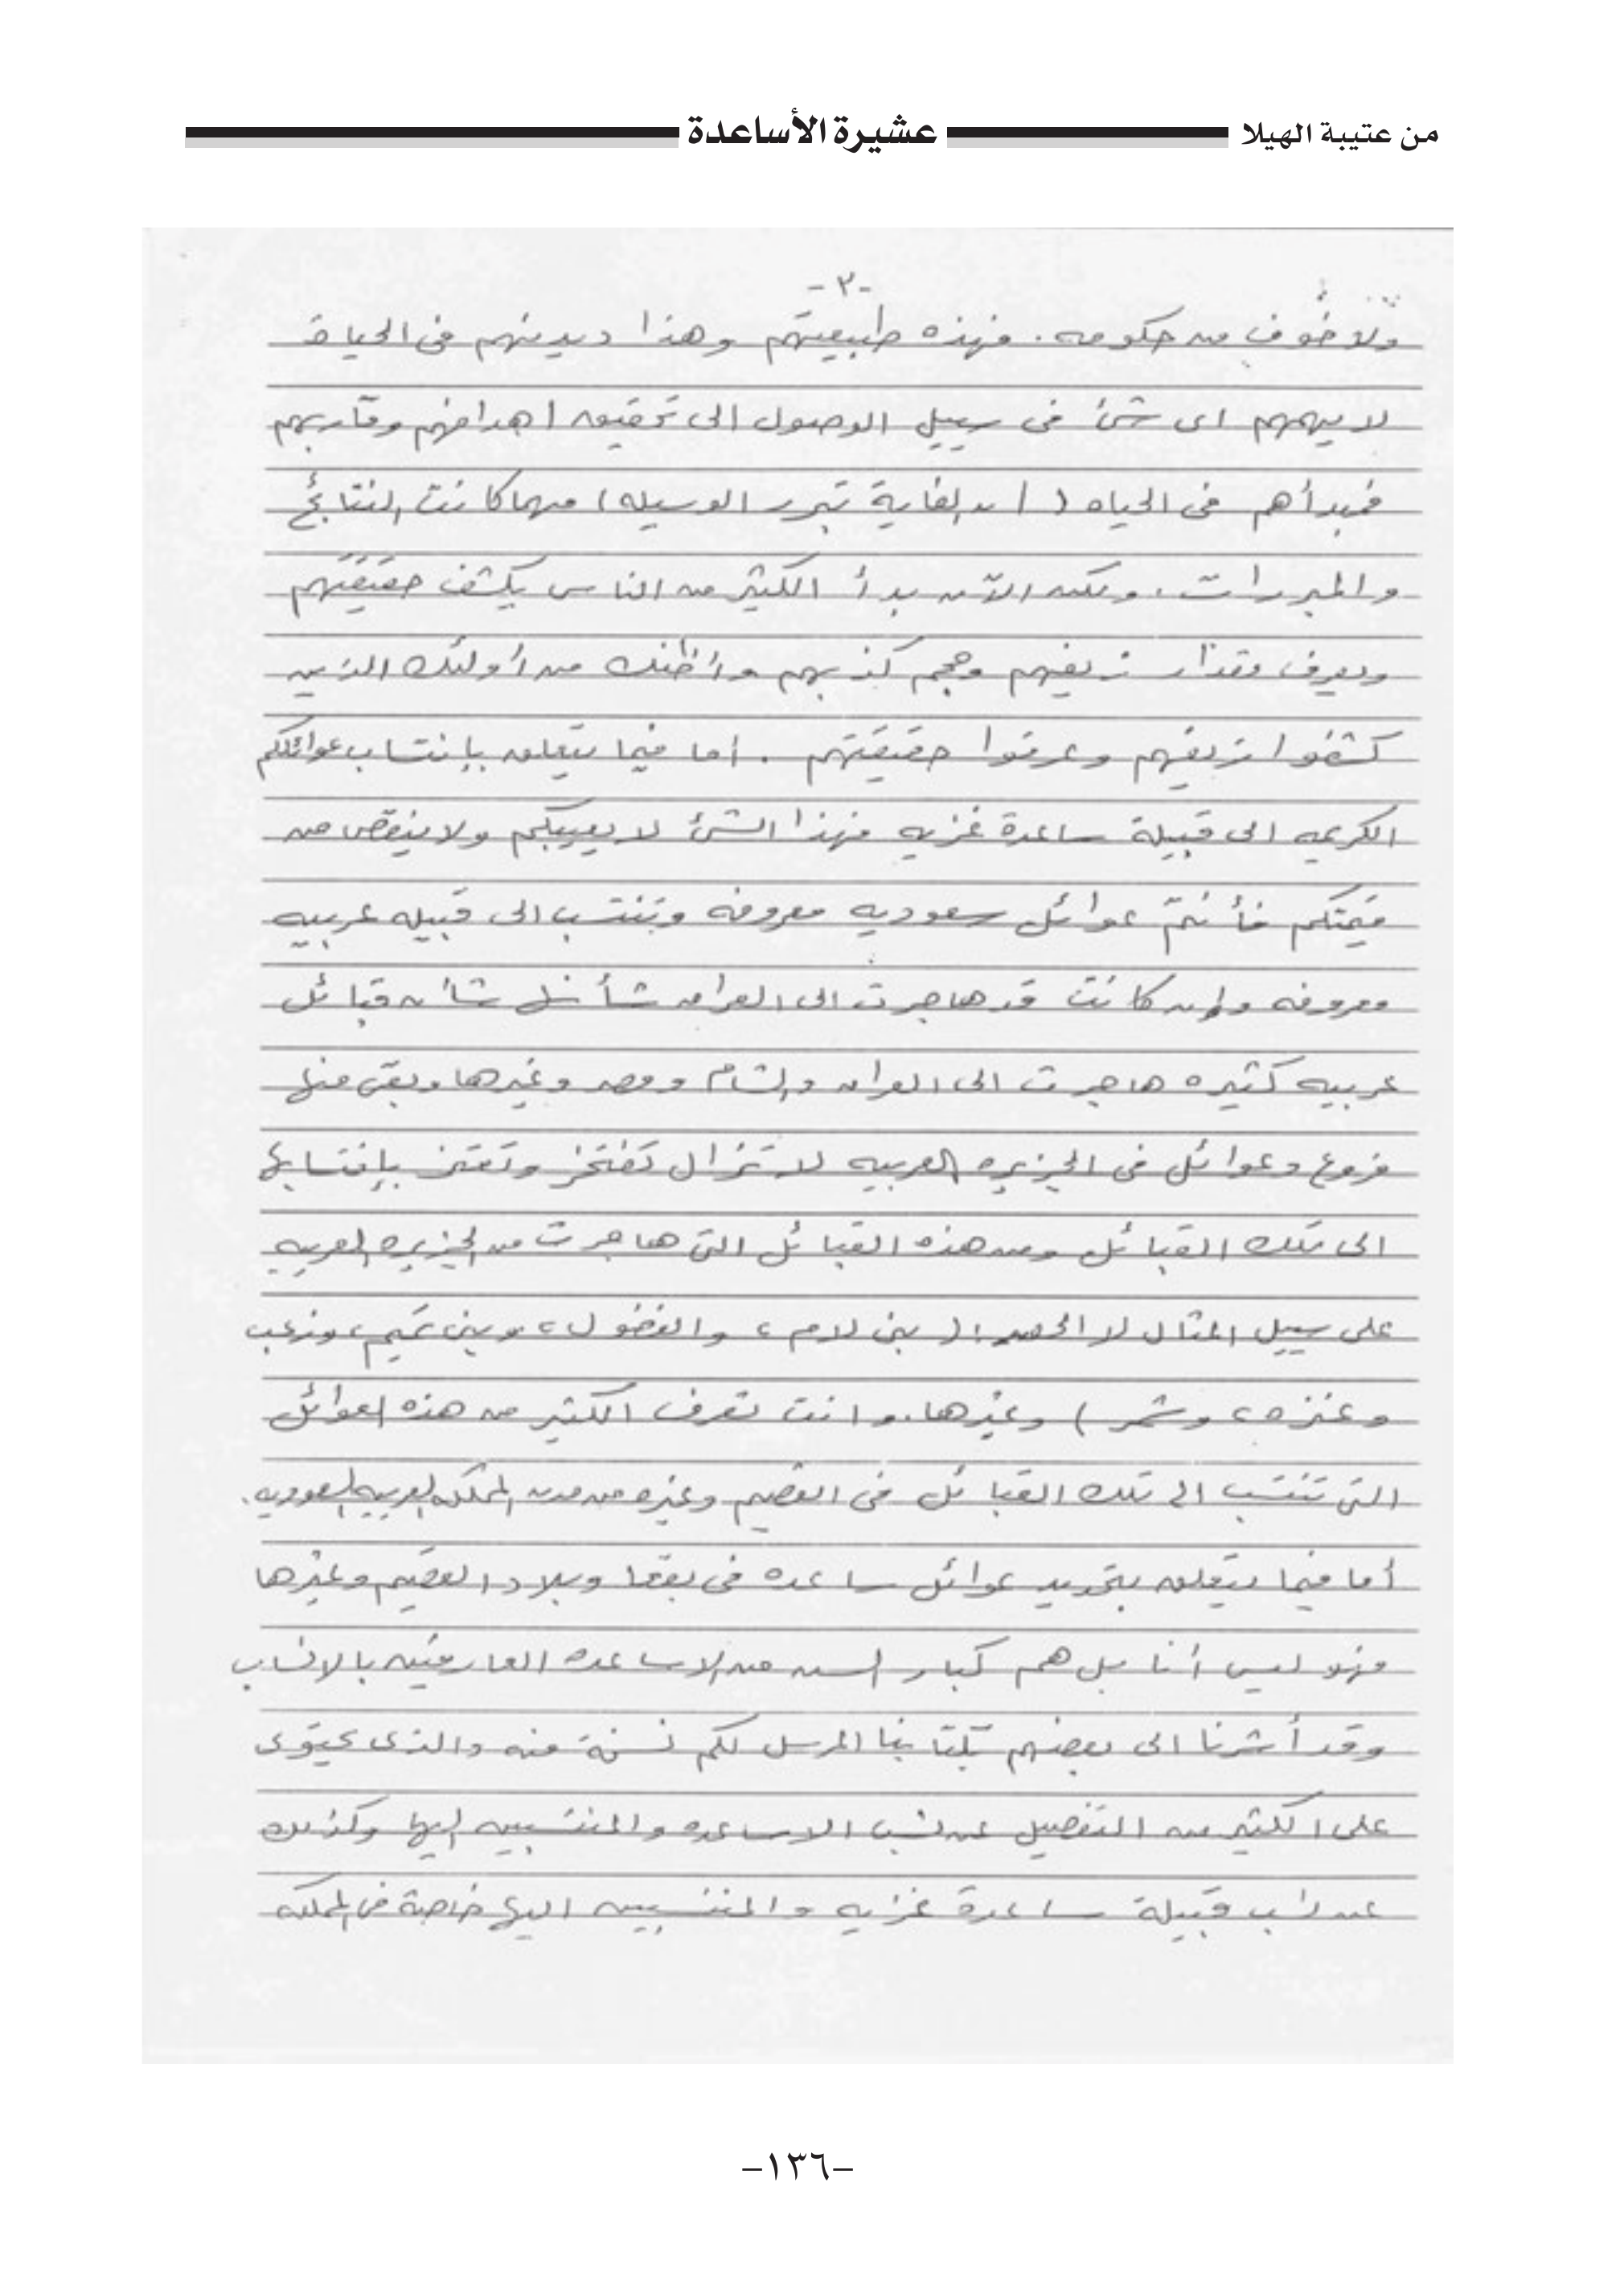 من عتيبة الهيلا عشيرة الأساعدة
-٢-
ولا خوف من حكومه . فهذه طبيعيتهم وهذا ديدينهم في الحياة
لا يهمهم اى شئ في سبيل الوصول الى تحقيق اهدافهم ومآربهم
فمبدأهم في الحياه ( ان الغاية تبرر الوسيله ) مهما كانت النتائج
والمبررات . ولكن الآن بدأ الكثير من الناس يكشف حقيقتهم
ويعرف مقدار زيفهم وحجم كذبهم وأظنك من أولئك الذين
كشفوا زيفهم وعرفوا حقيقتهم . أما فيما يتعلق بإنتساب عوائلكم
الكريمه الى قبيلة ساعدة غزيه فهذا الشئ لا يعيبكم ولا ينقص من
قيمتكم فأنتم عوائل سعوديه معروفه وتنتسب الى قبيله عربيه
معروفه وإن كانت قد هاجرت الى العراق شأنها شأن قبائل
عربيه كثيره هاجرت الى العراق والشام ومصر وغيرها وبقى منها
فروع وعوائل في الجزيره العربيه لا تزال تفتخر وتعتز بإنتسابها
الى تلك القبائل ومن هذه القبائل التى هاجرت من الجزيره العربيه
على سبيل المثال لا الحصر : ( بنى لام ، والفضول ، وبنى تميم ، وزعب
وعنزه ، وشمر ) وغيرها . وانت تعرف الكثير من هذه العوائل
التى تنتسب الى تلك القبائل في القصيم وغيره من مدن المملكه العربيه السعوديه .
أما فيما يتعلق بتحديد عوائل ساعده في بقعا وبلاد القصيم وغيرها
فهو ليس أنا بل هم كبار السن من الاساعده العارفين بالانساب
وقد أشرنا الى بعضهم بكتابنا المرسل لكم نسخة منه والذى يحتوى
على الكثير من التفصيل عن نسب الاساعده والمنتسبين إليها وكذلك
عن نسب قبيلة ساعدة غزيه والمنتسبين اليها خاصة في المملكه
-١٣٦-